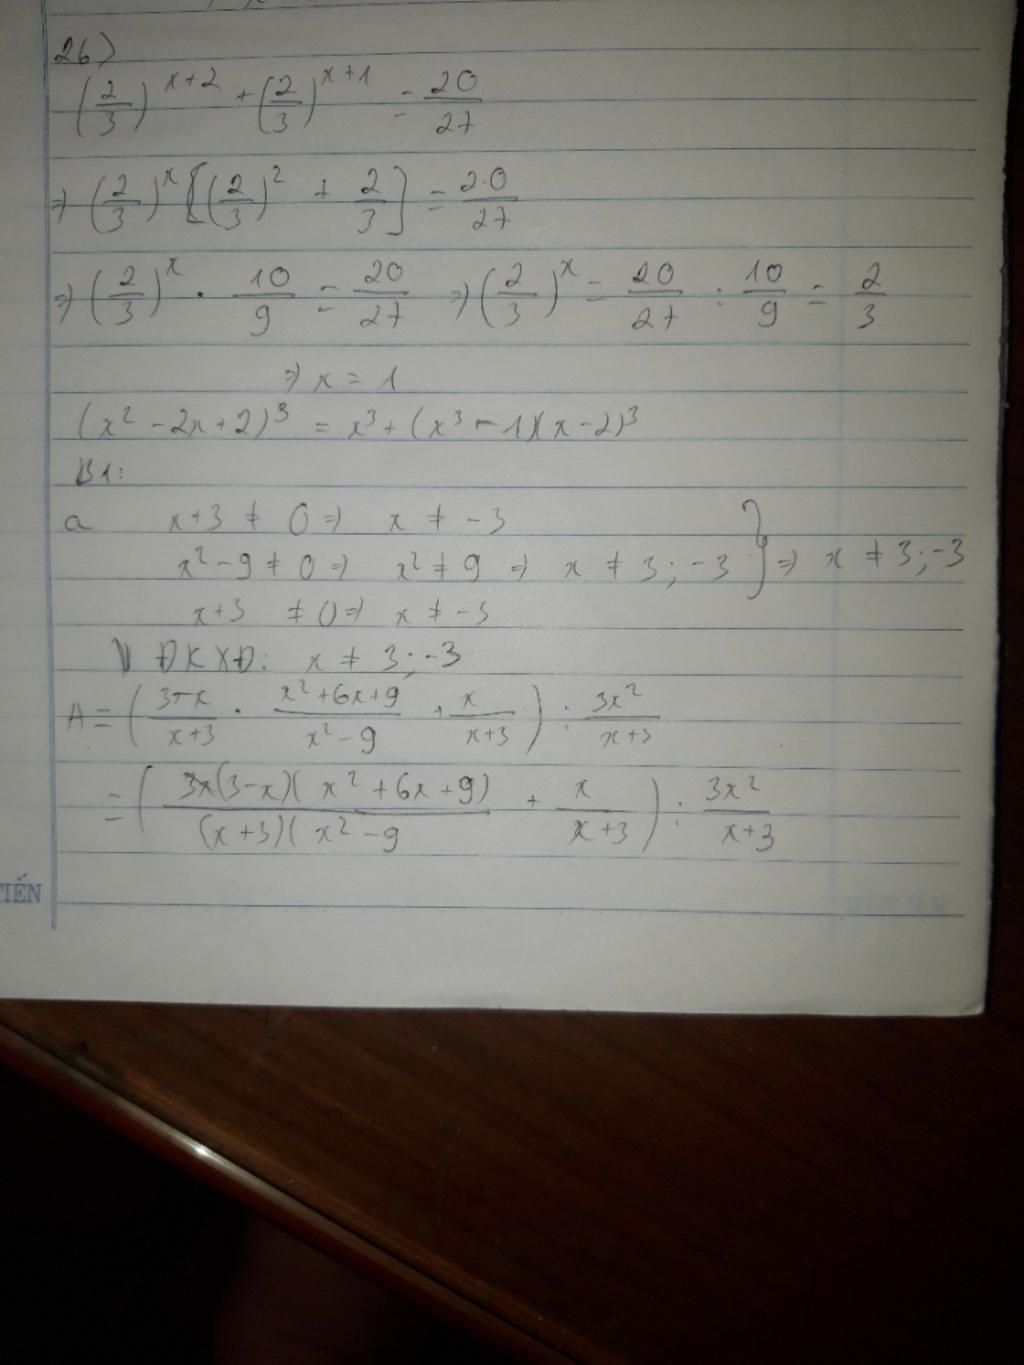 26)
(2/3)^(x+2) + (2/3)^(x+1) = 20/27
⇒ (2/3)^x [(2/3)^2 + 2/3] = 20/27
⇒ (2/3)^x . 10/9 = 20/27 ⇒ (2/3)^x = 20/27 : 10/9 = 2/3
⇒ x = 1
(x² - 2x + 2)³ = x³ + (x³ - 1)(x - 2)³
B1:
a x+3 ≠ 0 ⇒ x ≠ -3
x² - 9 ≠ 0 ⇒ x² ≠ 9 ⇒ x ≠ 3 ; -3 } ⇒ x ≠ 3 ; -3
x+3 ≠ 0 ⇒ x ≠ -3
ĐKXĐ: x ≠ 3 ; -3
A = ( (3-x)/(x+3) . (x²+6x+9)/(x²-9) + x/(x+3) ) : 3x²/(x+3)
= ( (3-x)(x²+6x+9)/(x+3)(x²-9 + x/(x+3) ) : 3x²/(x+3)
TIẾN